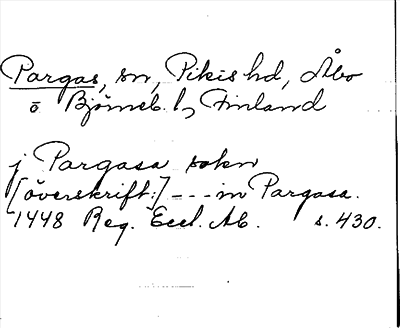 Pargas, sn, Pikis hd, Åbo
o Björneb. l, Finland
j Pargasa sokn
[överskrift:] --- in Pargasa.
1448 Reg. Eccl. Ab. s. 430.